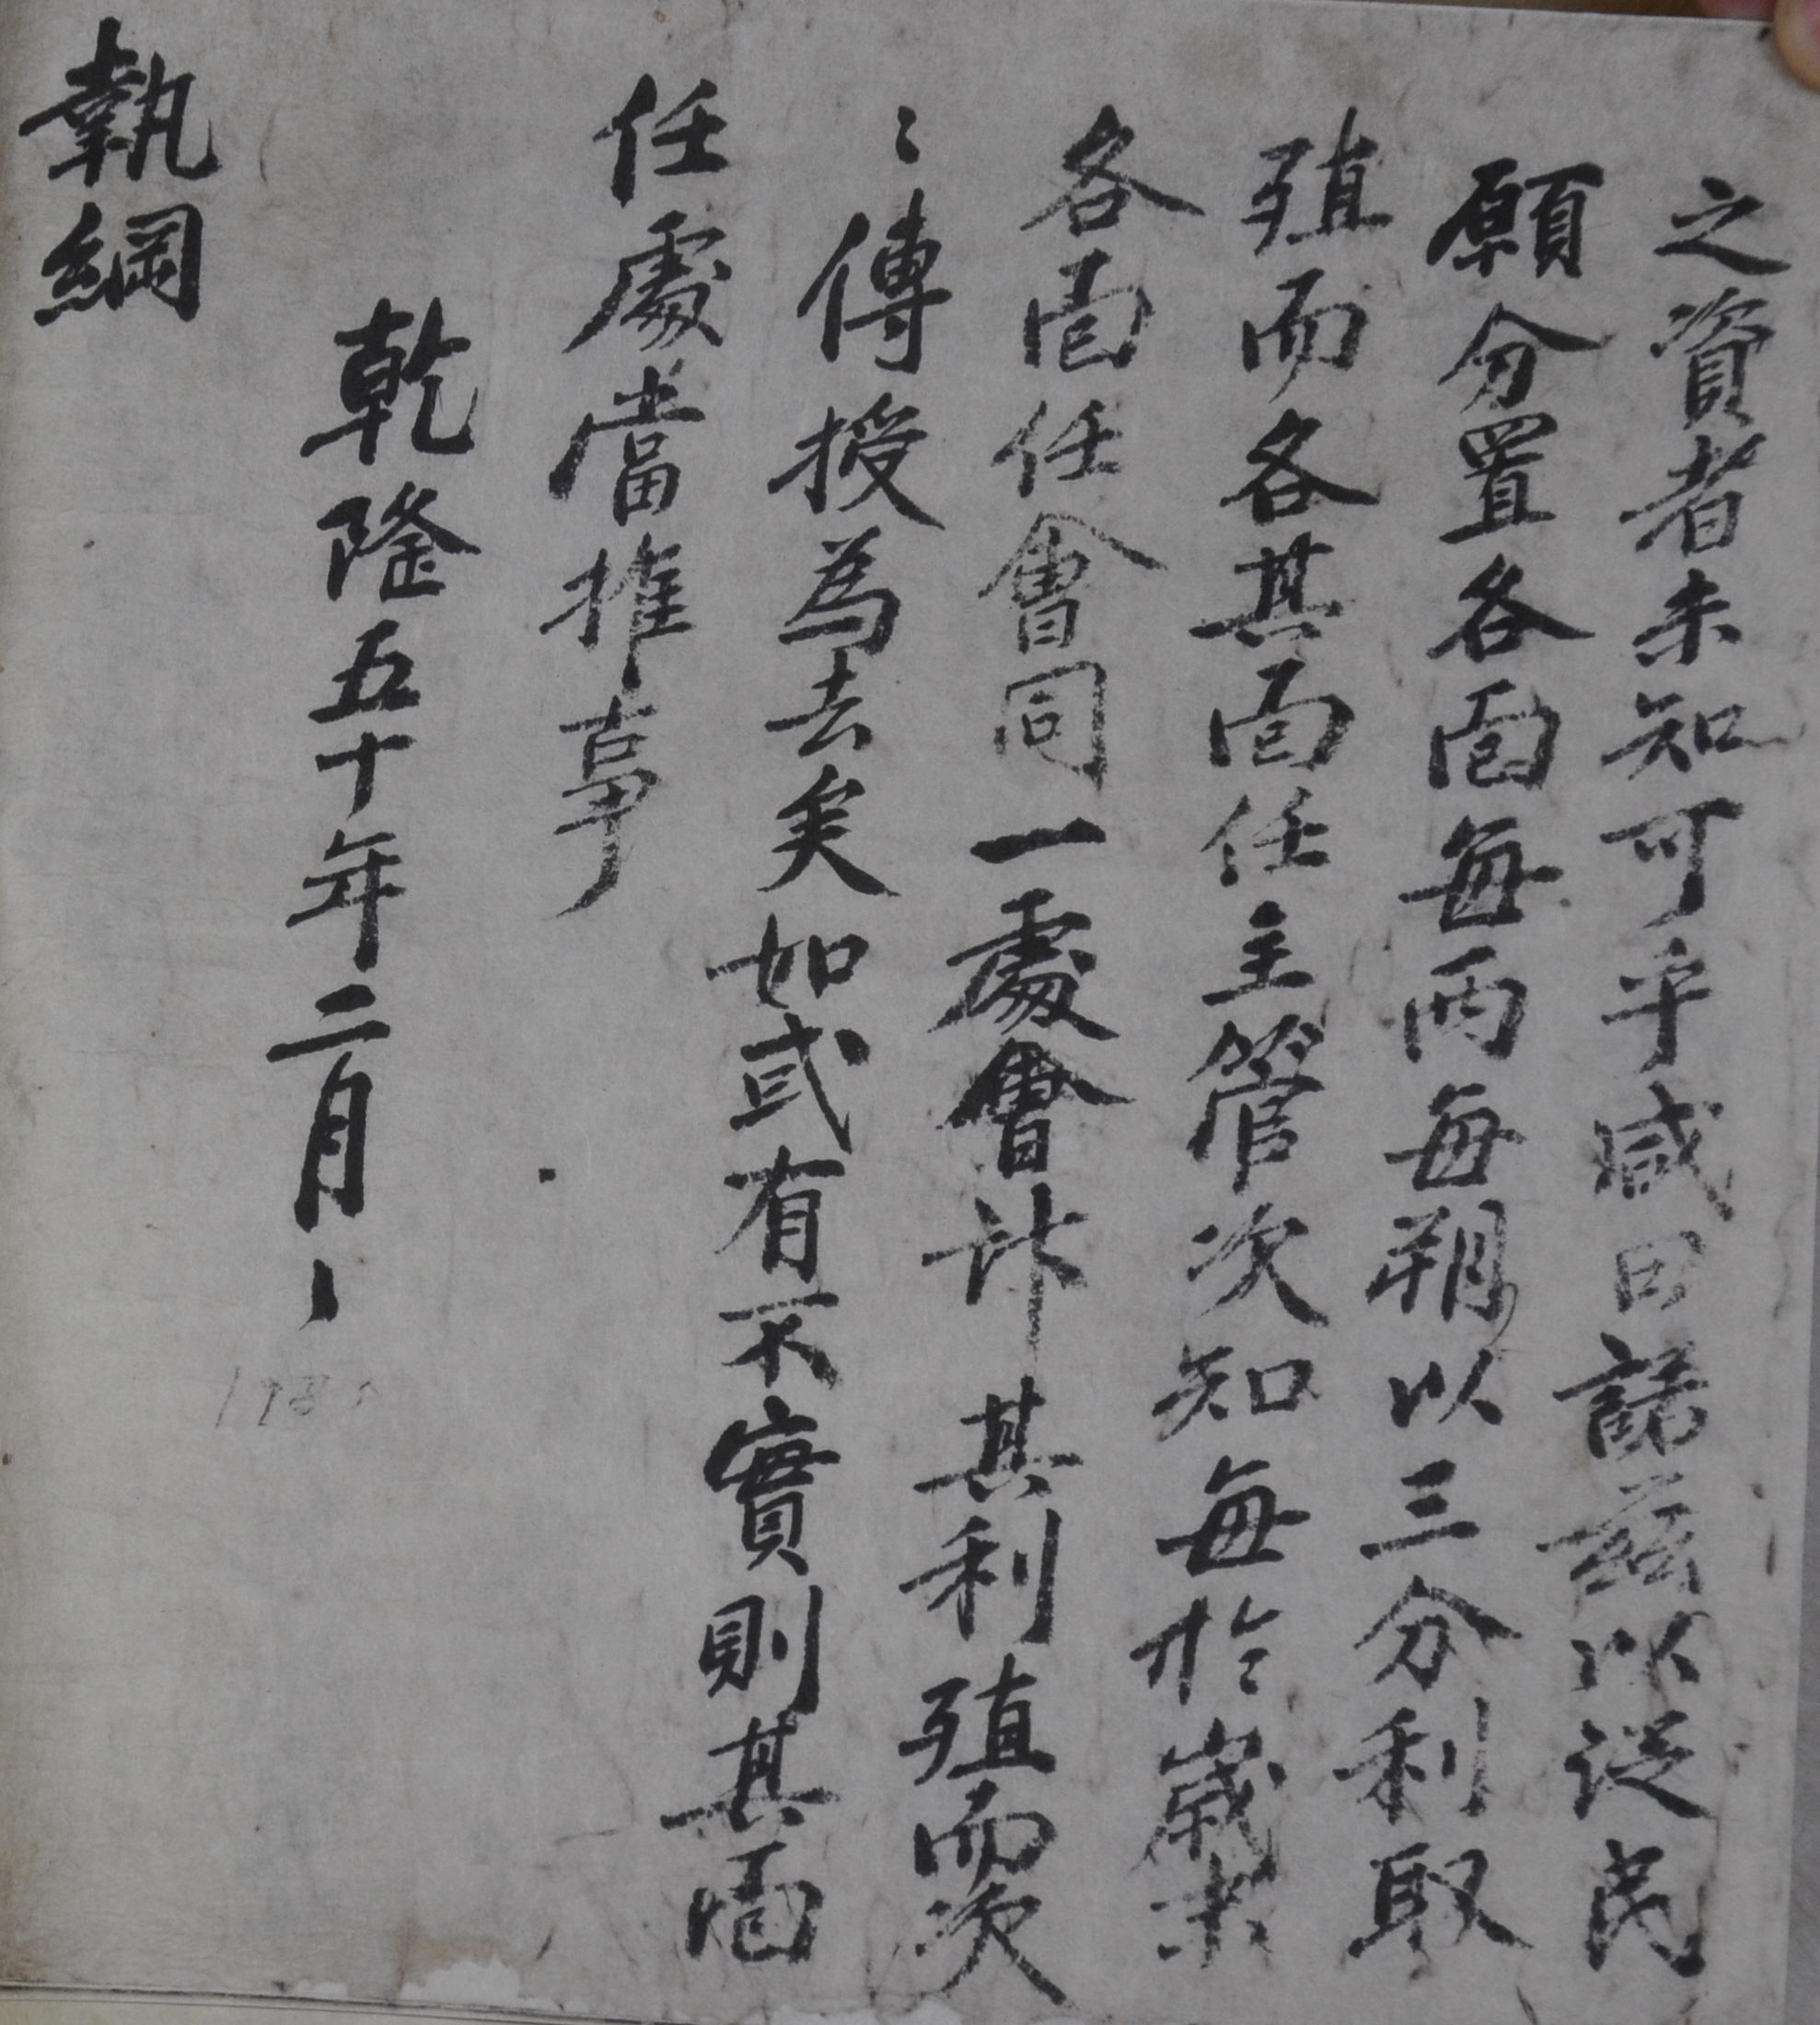 之資者未知可乎咸曰諾茲以從民
願分置各面每兩每朔以三分利取
殖而各其面任主管次知每於歲末
各面任會同一處會計其利殖而次
〻傳授爲去矣如或有不實則其面
任處當推事
乾隆五十年二月丶
執綱